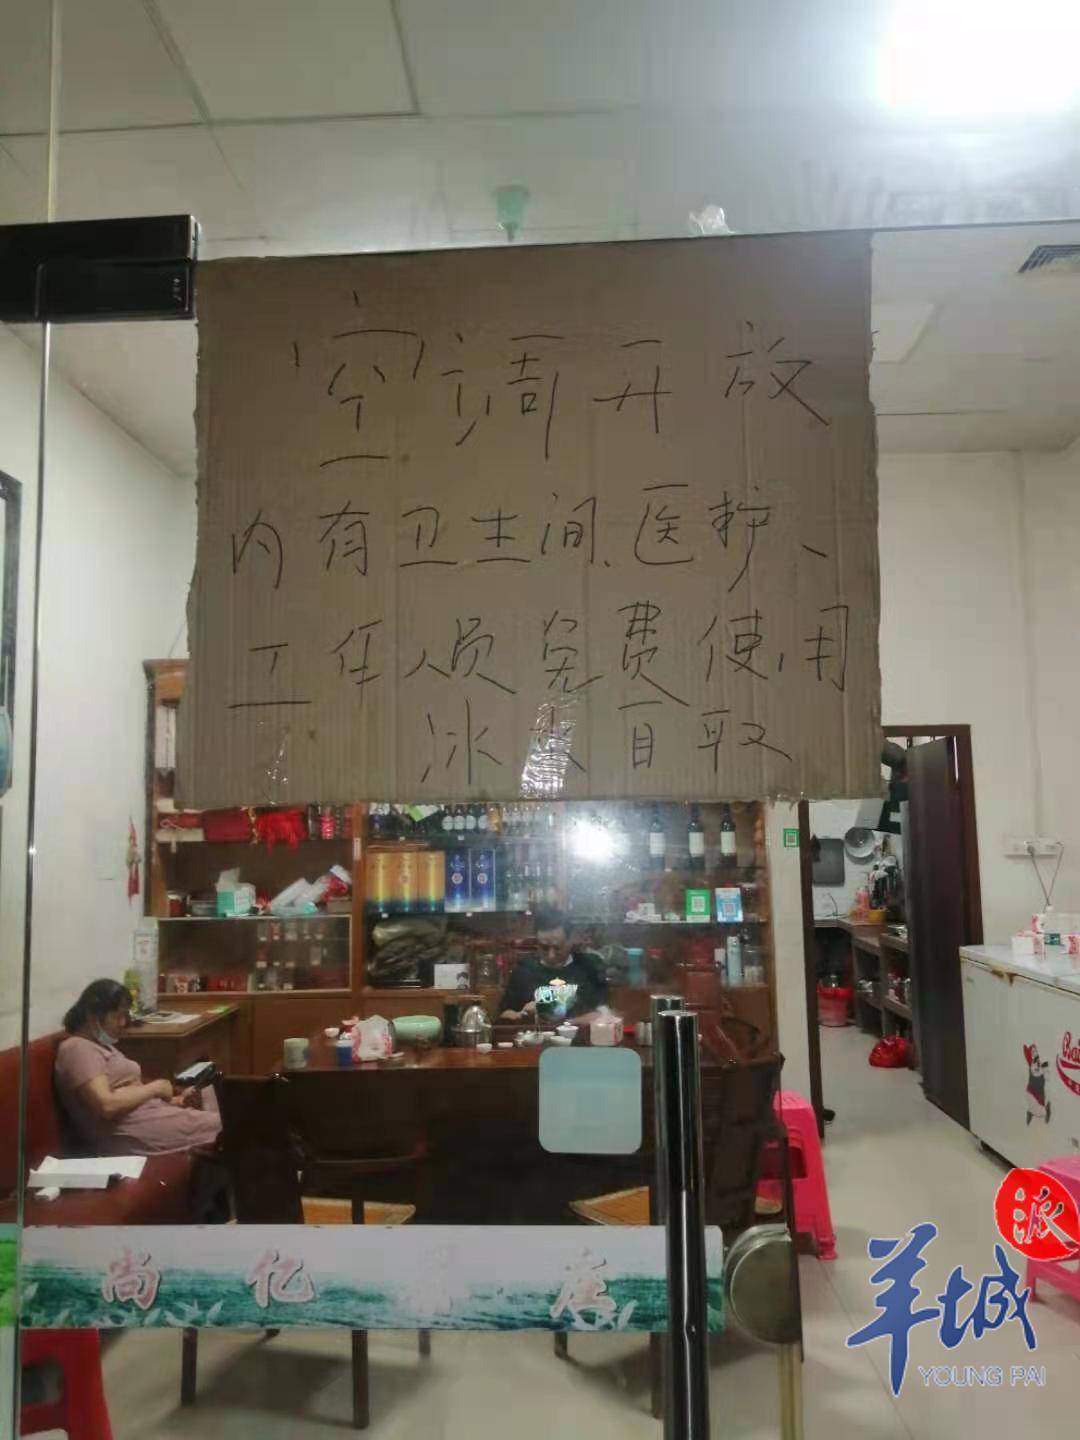 空调开放
内有卫生间、医护、
工作人员免费使用
冰水自取
尚亿
店
派
羊城
YOUNG PAI